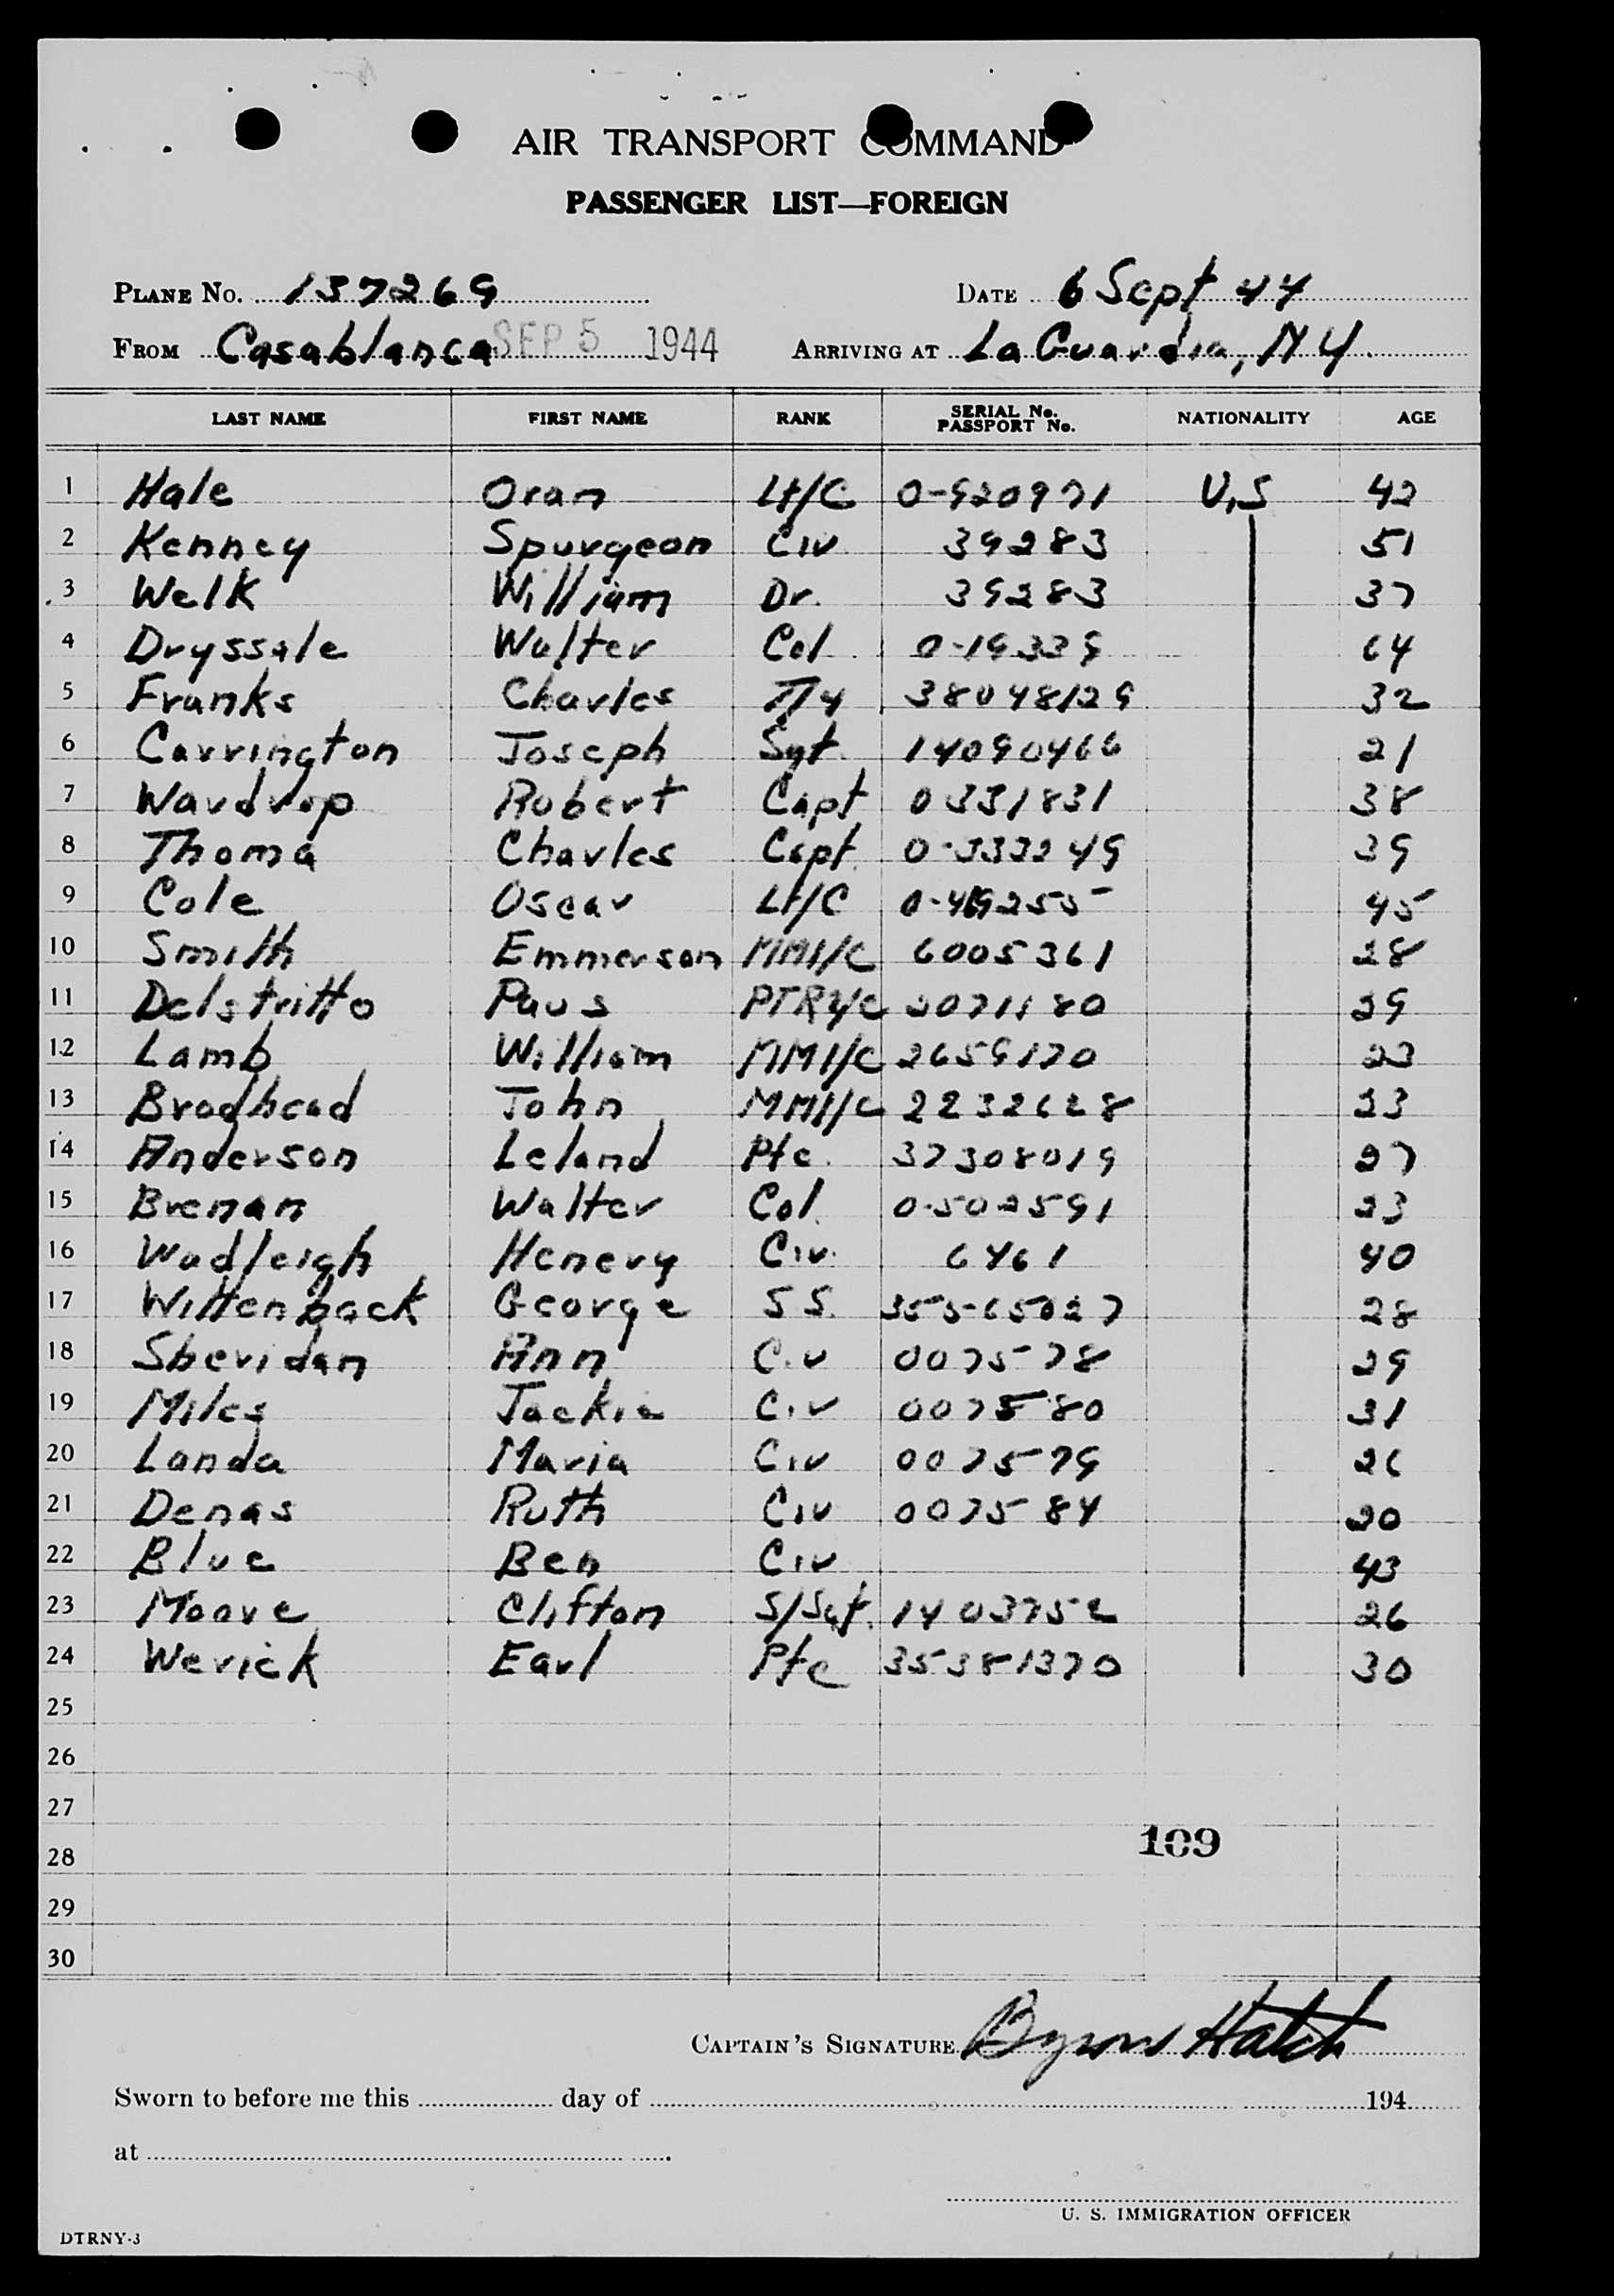 AIR TRANSPORT COMMAND
PASSENGER LIST—FOREIGN
PLANE No. 137269 DATE 6 Sept 44
FROM Casablanca SEP 5 1944 ARRIVING AT La Guardia, N Y.
LAST NAME FIRST NAME RANK SERIAL No. PASSPORT No. NATIONALITY AGE
1 Hale Oran Lt/C 0-920971 U.S 42
2 Kenney Spurgeon Civ 39283 51
3 Welk William Dr. 39283 37
4 Dryssale Walter Col 0-19339 64
5 Franks Charles T/4 38048129 32
6 Carrington Joseph Sgt. 14090466 21
7 Wardrop Robert Capt 0331831 38
8 Thoma Charles Capt. 0-333249 39
9 Cole Oscar Lt/C 45
10 Smith Emmerson MM1/C 6005361 28
11 Delstritto Paus 2071180 29
12 Lamb William MM1/C 2659170 23
13 Brodhead John MM1/C 2232628 23
14 Anderson Leland Pfc. 37308019 27
15 Brenan Walter Col. 0-502591 23
16 Wadleigh Henery Civ. 6461 40
17 Wittenback George S S. 355-65027 28
18 Sheridan Ann Civ 007578 29
19 Miles Jackie Civ 007580 31
20 Landa Maria Civ 007579 26
21 Denas Ruth Civ 007584 20
22 Blue Ben Civ 43
23 Moore Clifton S/Sgt. 26
24 Werick Earl Pfc 35381370 30
25
26
27
109
28
29
30
CAPTAIN'S SIGNATURE Byron Hatch
Sworn to before me this day of 194
at .
U. S. IMMIGRATION OFFICER
DTRNY-3